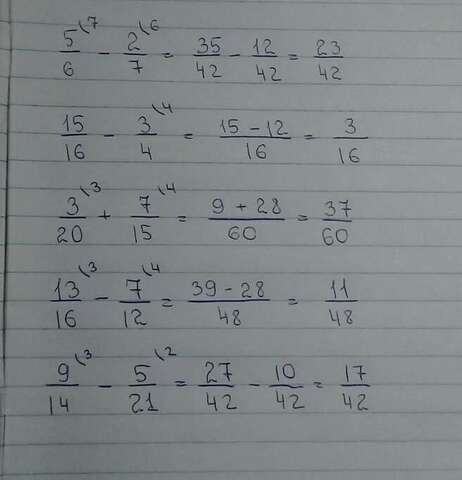 5/6 \7 - 2/7 \6 = 35/42 - 12/42 = 23/42
15/16 - 3/4 \4 = 15-12/16 = 3/16
3/20 \3 + 7/15 \4 = 9+28/60 = 37/60
13/16 \3 - 7/12 \4 = 39-28/48 = 11/48
9/14 \3 - 5/21 \2 = 27/42 - 10/42 = 17/42